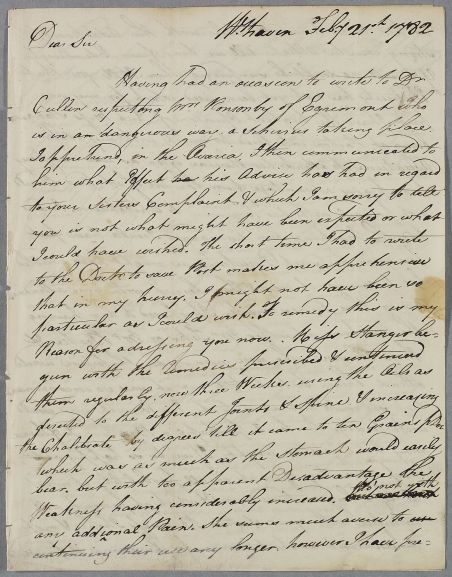 Whaven Feby 21st 1782
Dear Sir
Having had an occasion to write to Dr
Cullen respecting Mrs Ponsonby of Egremont who
is in a dangerous way, a Schirrus taking place
I apprehend, in the Ovaria, I then communicated to
him what Effect his Advice had had in regard
to your Sisters Complaint, & which I am sorry to tell
you is not what might have been expected or what
I could have wished. The short time I had to write
to the Doctor to save Post makes me apprehensive
that in my hurry, I might not have been so
particular as I could wish. To remedy this is my
Reason for adressing you now. Miss Stanger be-
gun with the Remedies prescribed & continued
them regularly now three Weeks, using the Oils as
directed to the different Joints & Spine & increasing
the Chalibeate by degrees till it came to ten Grains
which was as much as the Stomach would easily
bear, but with too apparent Disadvantage the
Weakness having considerably increased, tho' not with
any additional Pain. She seems much averse to
continuing their use any longer, however I have pre-